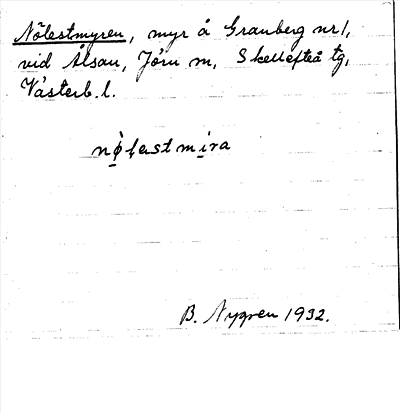 Nölestmyren, myr å Granberg nr 1,
vid Ålsån, Jörn sn, Skellefteå tg,
Västerb. l.
nø̀lestmira
B. Nygren 1932.